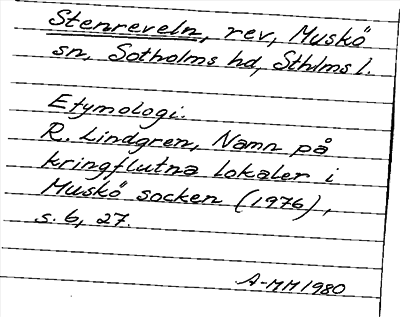 Stenreveln, rev, Muskö
sn, Sotholms hd, Sthlms l.
Etymologi.
R. Lindgren, Namn på
kringflutna lokaler i
Muskö socken (1976),
s. 6, 27.
A-MM 1980